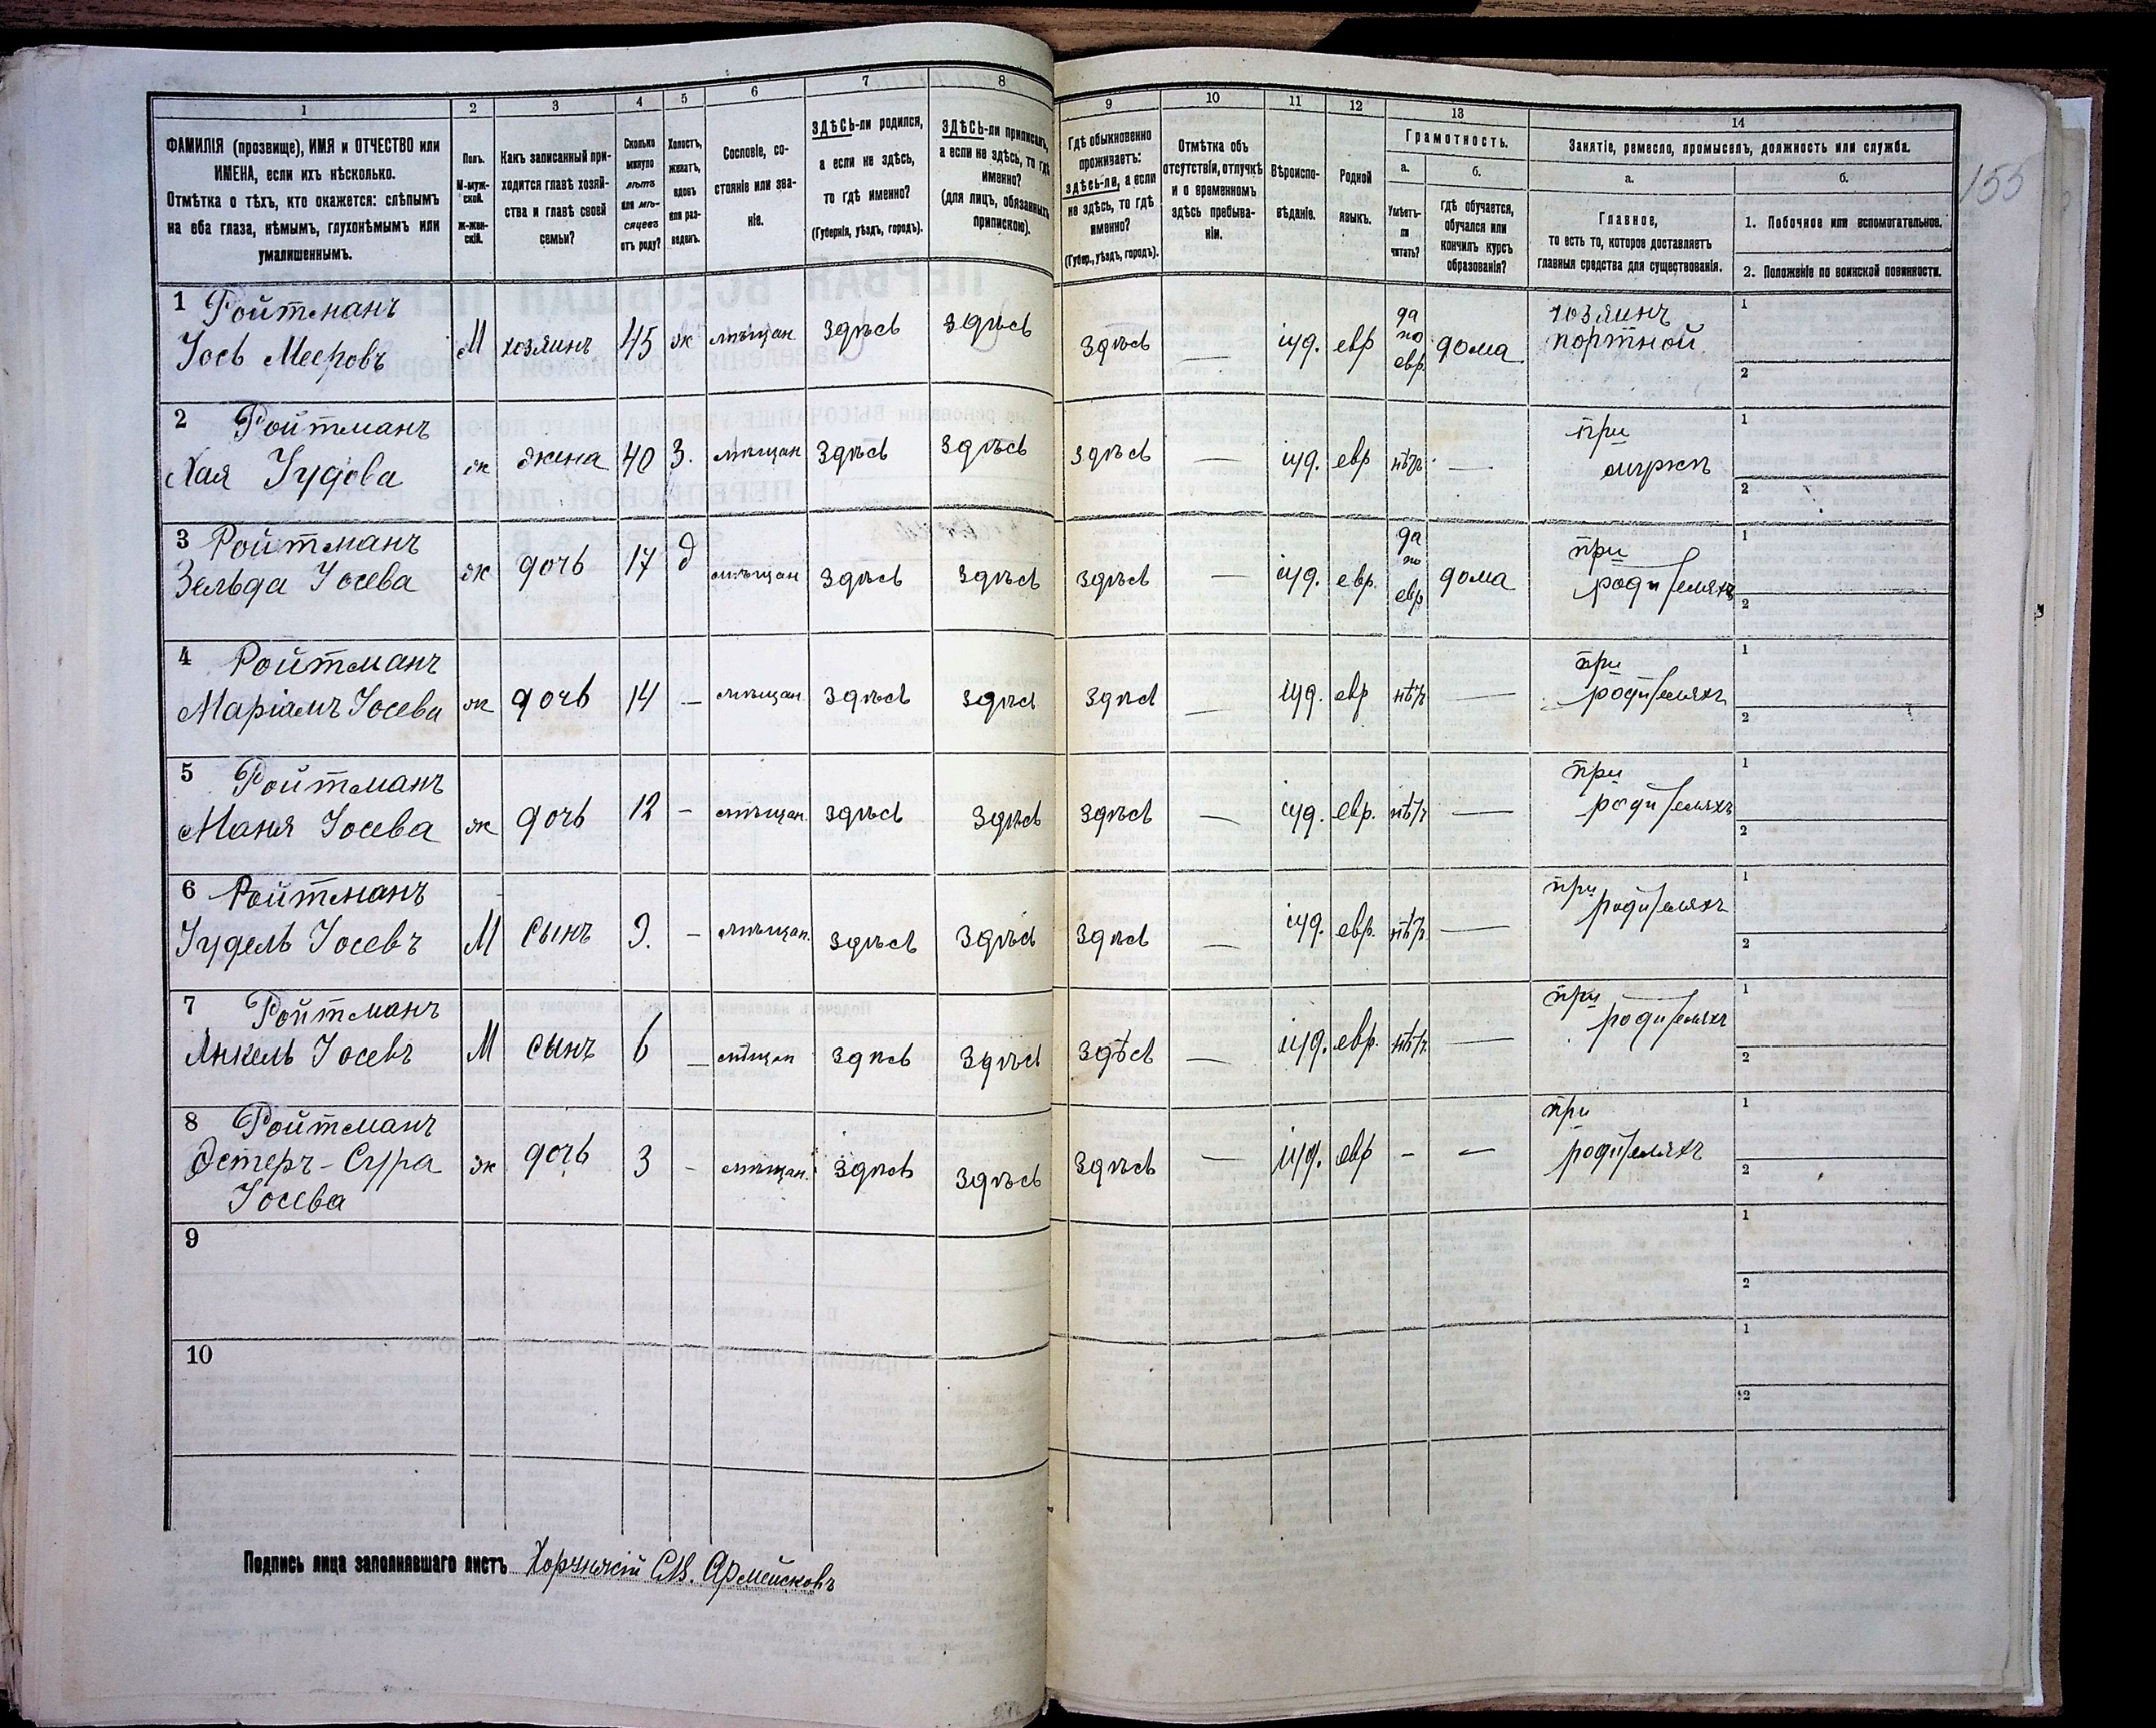 1
2
3
4
5
6
7
8
9
10
11
12
13
14
155
ФАМИЛІЯ (прозвище), ИМЯ и ОТЧЕСТВО или
ИМЕНА, если ихъ нѣсколько.
Отмѣтка о тѣхъ, кто окажется: слѣпымъ
на оба глаза, нѣмымъ, глухонѣмымъ или
умалишеннымъ.
Полъ.
М-муж-
ской.
Ж-жен-
скій.
Какъ записанный при-
ходится главѣ хозяй-
ства и главѣ своей
семьи?
Сколько
минуло
лѣтъ
или мѣ-
сяцевъ
отъ роду?
Холостъ,
женатъ,
вдовъ
или раз-
веденъ.
Сословіе, со-
стояніе или зва-
ніе.
ЗДѢСЬ-ли родился,
а если не здѣсь,
то гдѣ именно?
(Губернія, уѣздъ, городъ).
ЗДѢСЬ-ли приписанъ,
а если не здѣсь, то гдѣ
именно?
(для лицъ, обязанныхъ
припискою).
Гдѣ обыкновенно
проживаетъ:
здѣсь-ли, а если
не здѣсь, то гдѣ
именно?
(Губер., уѣздъ, городъ).
Отмѣтка объ
отсутствіи, отлучкѣ
и о временномъ
здѣсь пребыва-
ніи.
Вѣроиспо-
вѣданіе.
Родной
языкъ.
Грамотность.
а.
Умѣетъ-
ли
читать?
б.
гдѣ обучается,
обучался или
кончилъ курсъ
образованія?
Занятіе, ремесло, промыселъ, должность или служба.
а.
Главное,
то есть то, которое доставляетъ
главныя средства для существованія.
б.
1. Побочное или вспомогательное.
2. Положеніе по воинской повинности.
1 Ройтманъ
Іось Мееровъ
М хозяинъ 45 ж мѣщан здѣсь здѣсь здѣсь — іуд. евр да по евр. дома хозяинъ портной
1
2
2 Ройтманъ
Хая Іудова
ж жена 40 З. мѣщан здѣсь здѣсь здѣсь — іуд. евр нѣтъ — при мужѣ
1
2
3 Ройтманъ
Зельда Іосева
ж дочь 17 д мѣщан здѣсь здѣсь здѣсь — іуд. евр. да по евр дома при родителяхъ
1
2
4 Ройтманъ
Маріамъ Іосева
ж дочь 14 — мѣщан здѣсь здѣсь здѣсь — іуд. евр нѣтъ — при родителяхъ
1
2
5 Ройтманъ
Маня Іосева
ж дочь 12 — мѣщан. здѣсь здѣсь здѣсь — іуд. евр. нѣтъ — при родителяхъ
1
2
6 Ройтманъ
Іудель Іосевъ
М сынъ 9. — мѣщан. здѣсь здѣсь здѣсь — іуд. евр. нѣтъ — при родителяхъ
1
2
7 Ройтманъ
Янкель Іосевъ
М сынъ 6 — мѣщан здѣсь здѣсь здѣсь — іуд. евр. нѣтъ — при родителяхъ
1
2
8 Ройтманъ
Эстеръ-Сура
Іосева
ж дочь 3 — мѣщан. здѣсь здѣсь здѣсь — іуд. евр — — при родителяхъ
1
2
9
1
2
10
1
2
Подпись лица заполнявшаго листъ Хорунжій Армейсковъ